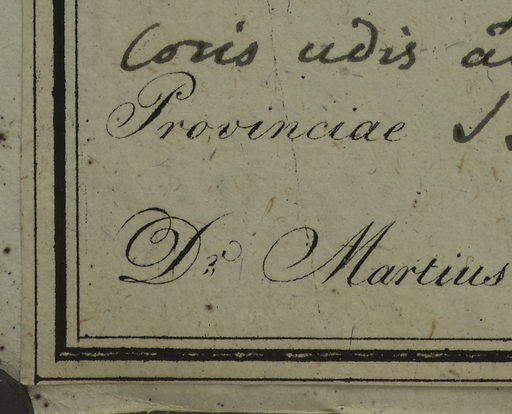 locis udis
Provinciae
Dr. Martius